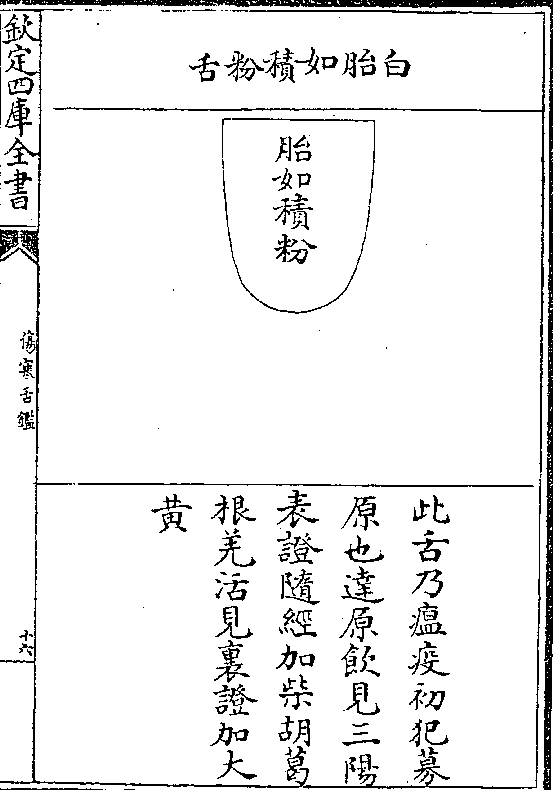 白胎如積粉舌
胎如積粉
此舌乃瘟疫初犯募
原也達原飲見三陽
表證隨經加柴胡葛
根羌活見裏證加大
黃
欽定四庫全書
傷寒舌鑑
十六